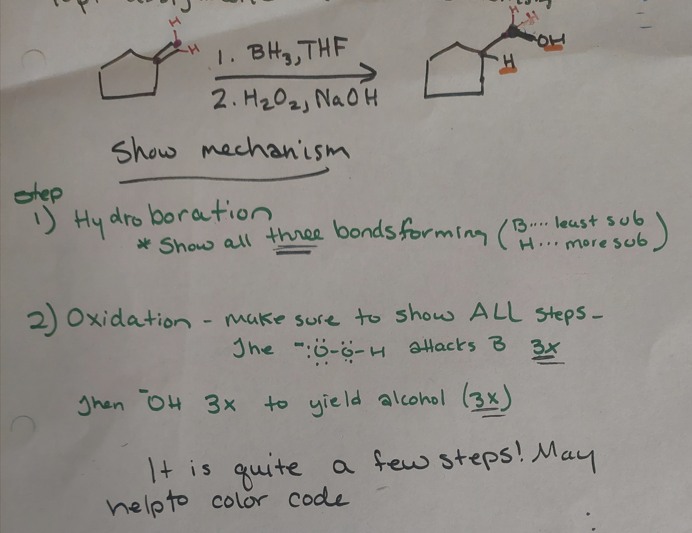 H
H
1. BH3, THF
2. H2O2, NaOH
H
H
OH
H
Show mechanism
Step
1) Hydroboration
* Show all three bonds forming (B.... least sub
H... more sub)
2) Oxidation - make sure to show ALL steps -
The -:Ö-Ö-H attacks B 3x
Then -OH 3x to yield alcohol (3x)
It is quite a few steps! May
help to color code